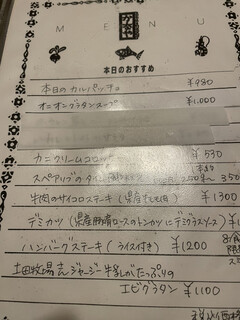 MENU
本日のおすすめ
本日のカルパッチョ ¥980
オニオングラタンスープ ¥1,000
カニクリームコロッケ ¥530
スペアリブの
牛肉のサイコロステーキ(県産 ¥1300
デミカツ(県産豚肩ロースのトンカツにデミグラスソース)
ハンバーグステーキ(ライス付き) ¥1200
土田牧場さんジャージー牛乳がたっぷりの
エビグラタン ¥1100
税込価格